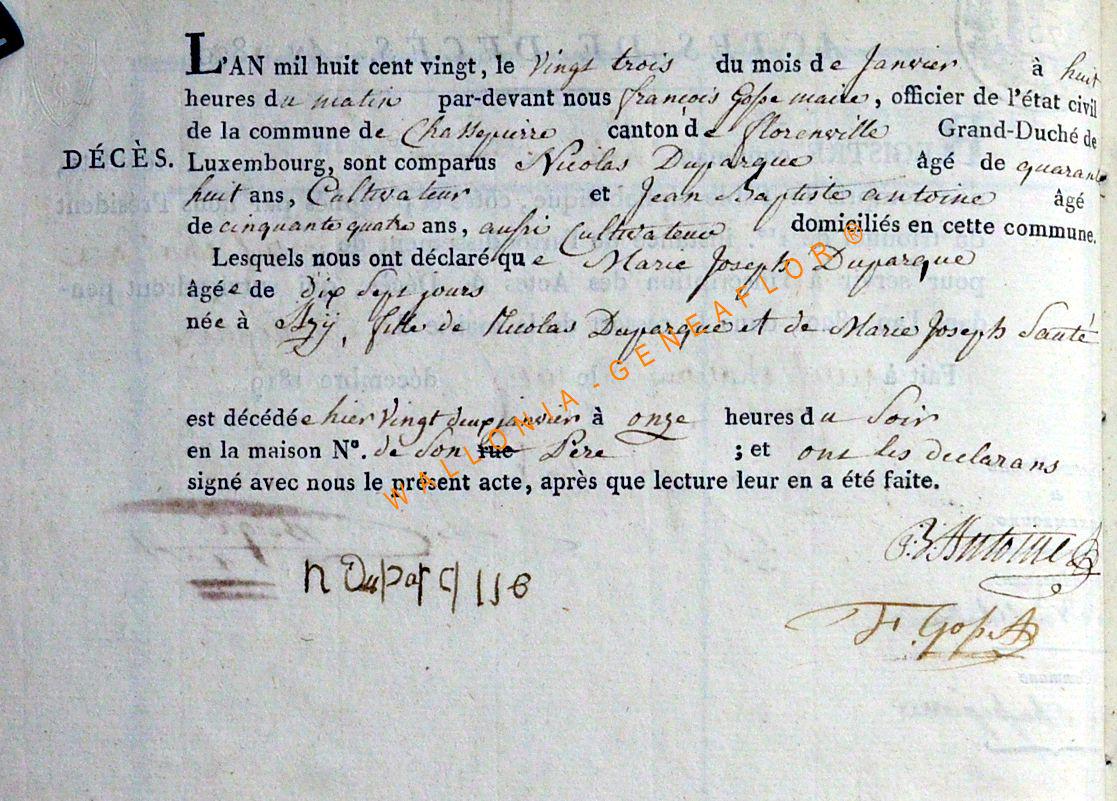 L'AN mil huit cent vingt, le vingt trois du mois de Janvier à huit
heures du matin par-devant nous françois Gosse maire, officier de l'état civil
de la commune de Chassepierre canton de florenville Grand-Duché de
DÉCÈS. Luxembourg, sont comparus Nicolas Duparque âgé de quarante
huit ans, Cultivateur et Jean Baptiste antoine âgé
de cinquante quatre ans, aussi Cultivateur domiciliés en cette commune.
Lesquels nous ont déclaré que Marie Joseph Duparque
âgée de dix Sept jours
née à Azÿ, fille de Nicolas Duparque et de Marie Joseph Santé
est décédée hier vingt deux janvier à onze heures du Soir
en la maison N°. de Son rue Pere ; et ont les declarans
signé avec nous le présent acte, après que lecture leur en a été faite.
JB Antoine
n Duparque
F. Gosse
WALLONIA-GENEAFLOR ®